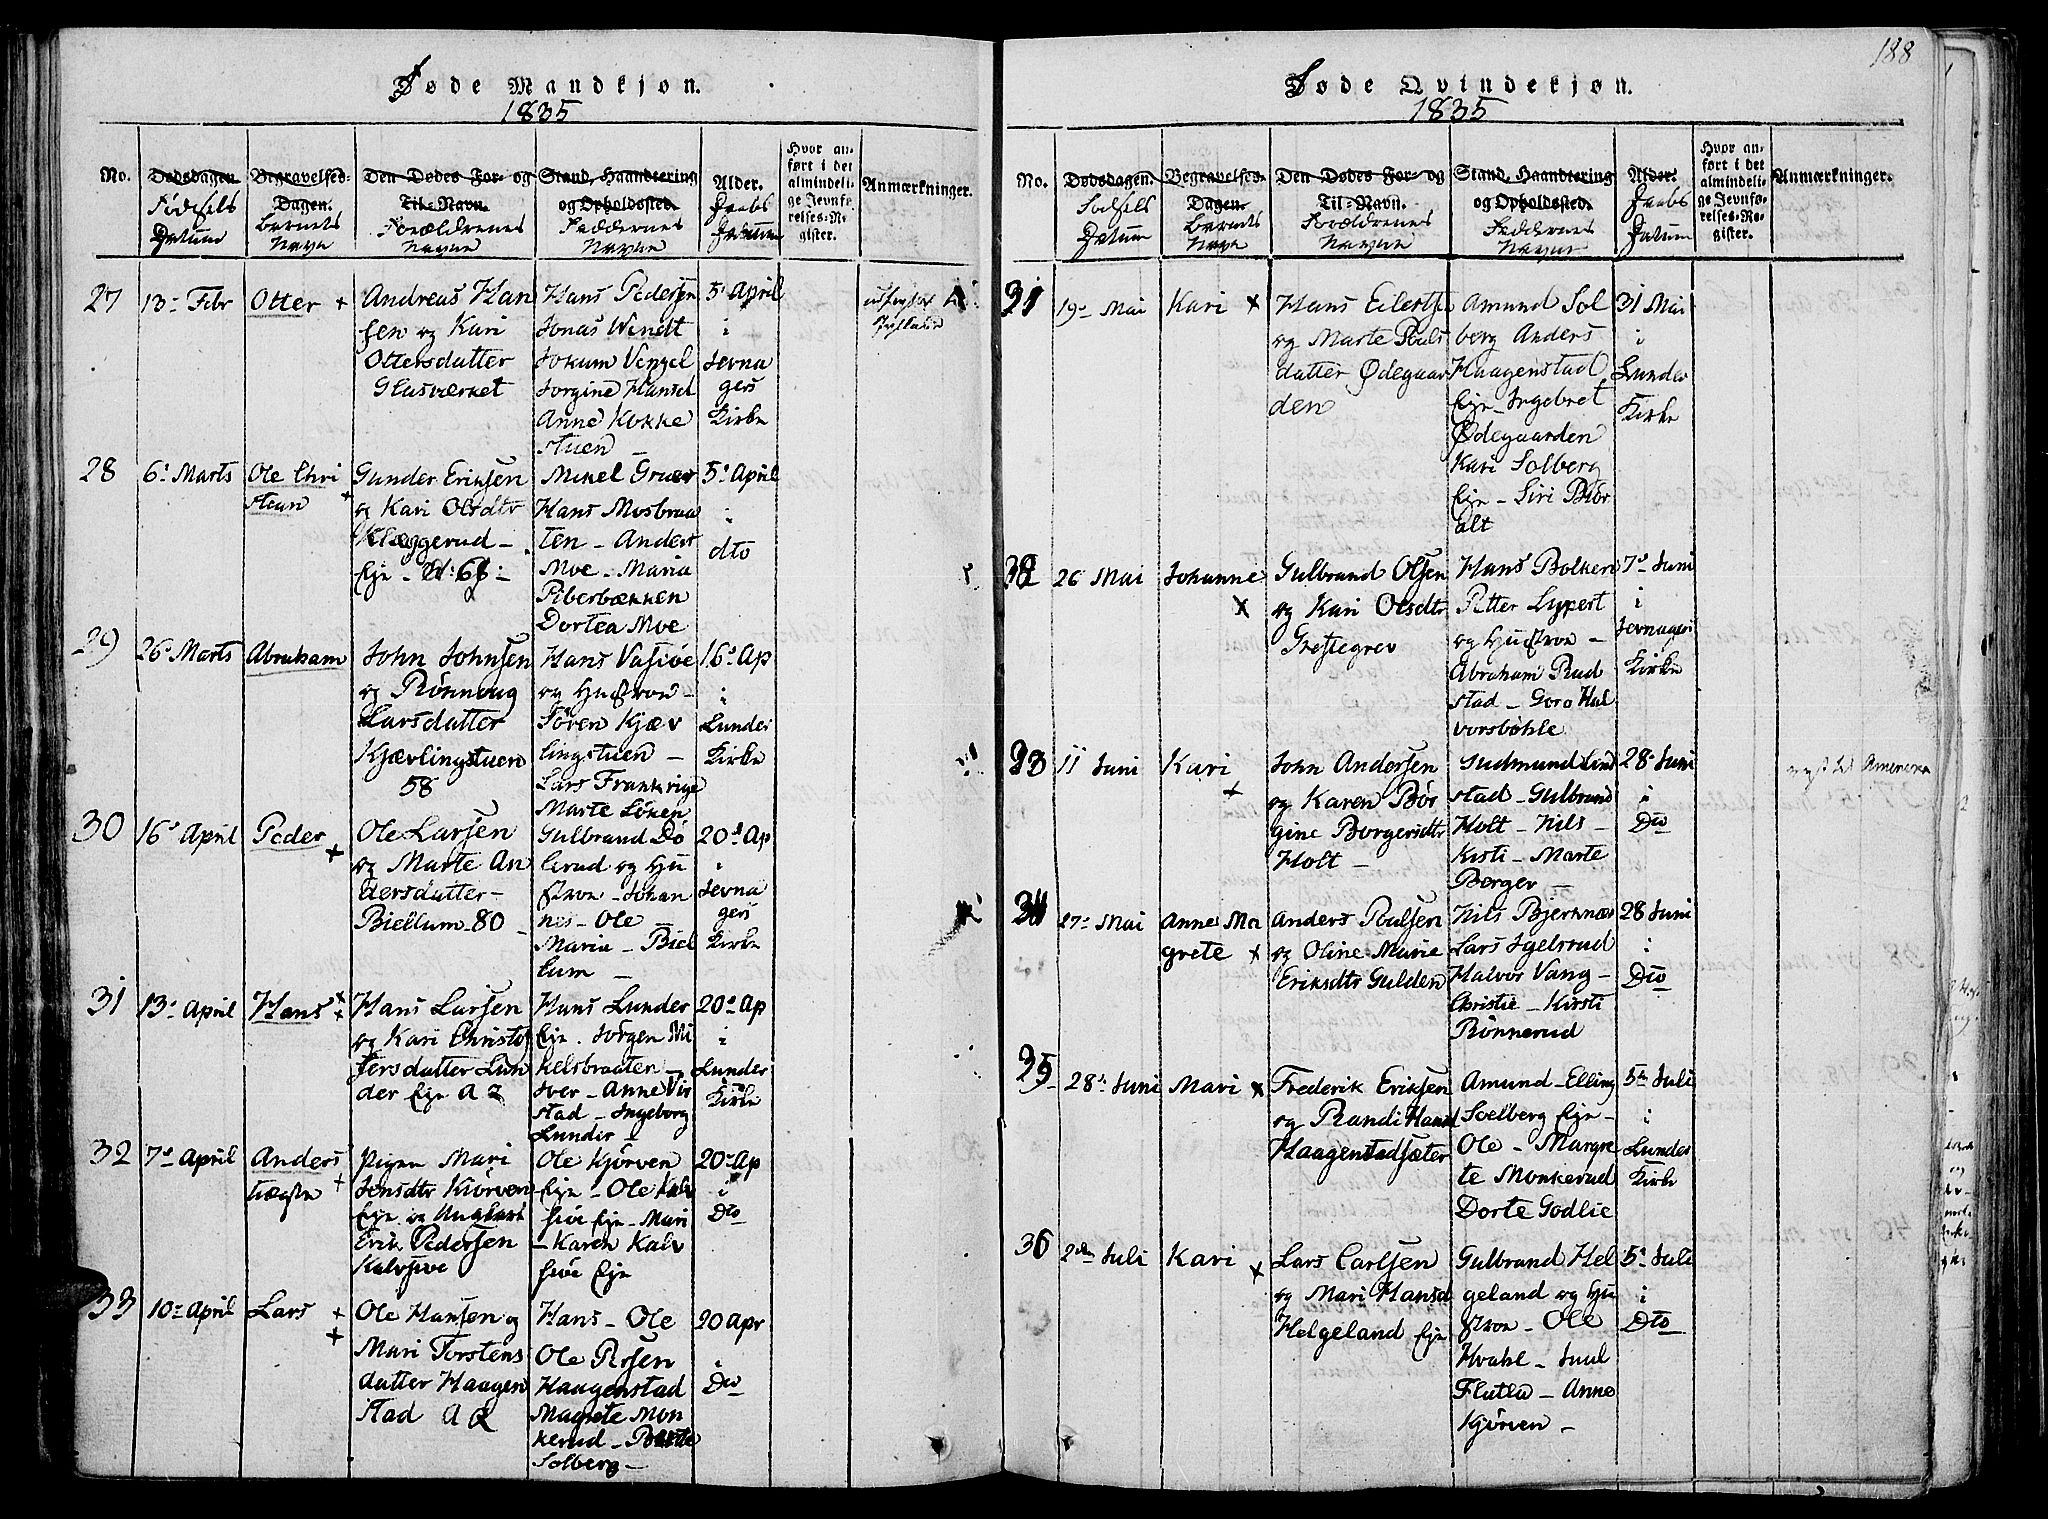 188
Føde Mandkjøn.
1835
No.
Dødsdagen
Fødsels
Datum
Begravelses-
Dagen.
Barnets
Navn
Den Dødes For- og
Til-Navn.
Forældrenes
Navne
Stand, Haandtering
og Opholdssted.
Faddernes
Navne
Alder.
Daabs
Datum
Hvor an-
ført i det
almindeli-
ge Jevnfø-
relses-Re-
gister.
Anmærkninger.
27
13 Febr
Otter
Andreas Han
sen og Kari
Ottersdatter
Glasværket
Hans Pedersen
Jonas Wendt
Jokum Venzel
Jorgine Hansd
Anne Kokke
stuen
5 April
i
Jevna
gers
Kirke
28
6 Marts
Ole Chri
stian
Gunder Eriksen
og Kari Olsdtr
Klæggerud
Eje
Mikel Gruer
Hans Mosbraa
ten - Anders
Moe - Maria
Piberbækken
Dortea Moe
5 April
i
dto
29
26 Marts
Abraham
John Johnsen
og Rønnoug
Larsdatter
Kjævlingstuen
58
Hans Vasiøe
og Hustroe -
Søren Kjæv
lingstuen -
Lars Frankrige
Marte Løken
16 Ap
i
Lunder
Kirke
30
16 April
Peder
Ole Larsen
og Marte An
dersdatter -
Biellum 80
Gulbrand Dø
lerud og Hu
stroe - Johan
nes - Ole
Maria - Biel
lum -
20 Ap
i
Jevna
gers
Kirke
31
13 April
Hans
Hans Larsen
og Kari Christof
fersdatter Lun
der Eje A 2
Hans Lunder
Eje. Jørgen Mi
kelsbraaten -
Iver - Anne Vis
stad - Ingeborg
Lunder -
20 Ap
i
Lunder
Kirke
32
7 April
Anders
Pigen Mari
Jensdtr Kiørven
Eje og
Erik Pedersen
Kalvsiøe
Ole Kjørven
Eje - Ole Kalv
siøe Eje - Mari
- Karen Kalv
siøe Eje
20 Ap
i
Dto
33
10 April
Lars
Ole Hansen og
Mari Torstens
datter Haagen
stad A 2
Hans - Ole
Ole Persen
Haagenstad
Magrete Mon
kerud -
Solberg -
20 Apr
i
Dto
Føde Qvindekjøn.
1835
No.
Dødsdagen.
Fødsels
Datum
Begravelses-
Dagen.
Barnets
Navn
Den Dødes For- og
Til-Navn.
Forældrenes
Navne
Stand, Haandtering
og Opholdssted.
Faddernes
Navne
Alder.
Daabs
Datum
Hvor an-
ført i det
almindeli-
ge Jevnfø-
relses-Re-
gister.
Anmærkninger.
31
19 Mai
Kari
Hans Eilertsen
og Marte Pouls
datter Ødegaar
den
Amund Sol
berg Anders
Haagenstad
Eje - Ingebret
Ødegaarden
Kari Solberg
Eje - Siri Biør
alt
31 Mai
i
Lunder
Kirke
32
26 Mai
Johanne
Gulbrand Olsen
og Kari Olsdtr
Grestegrev
Hans Bolken
Petter Lypert
og Hustroe -
Abraham Rud
stad - Goro Hal
vorsbøhle
7 Juni
i
Jevnagers
Kirke
33
11 Juni
Kari
John Andersen
og Karen Bør
gine Borgersdtr
Holt -
Gudmund Lind
stad - Gulbrand
Holt - Nils -
Kisti - Marte
Borger -
28 Juni
i
Dto
rejst til Amerika
34
27 Mai
Anne Ma
grete
Anders Poulsen
og Oline Marie
Eriksdtr Gulden
Nils Bjerknæs
Lars Igelsrud
Halvor Vang -
Christie - Kirsti
Rønnerud
28 Juni
i
Dto
35
28 Juni
Mari
Frederik Eriksen
og Randi Hansd
Haagenstadsæter
Amund - Elling
Soelberg Eje -
Ole - Margre
te Monkerud
Dorte Godlie
5 Juli
i
Lunder
Kirke
36
2den Juli
Kari
Lars Carlsen
og Mari Hansd
Helgeland Eje
Gulbrand Hel
geland og Hu
stroe - Ole
Hvahl - Juul
Flatla - Anne
Kjørven -
5 Juli
i
Dto